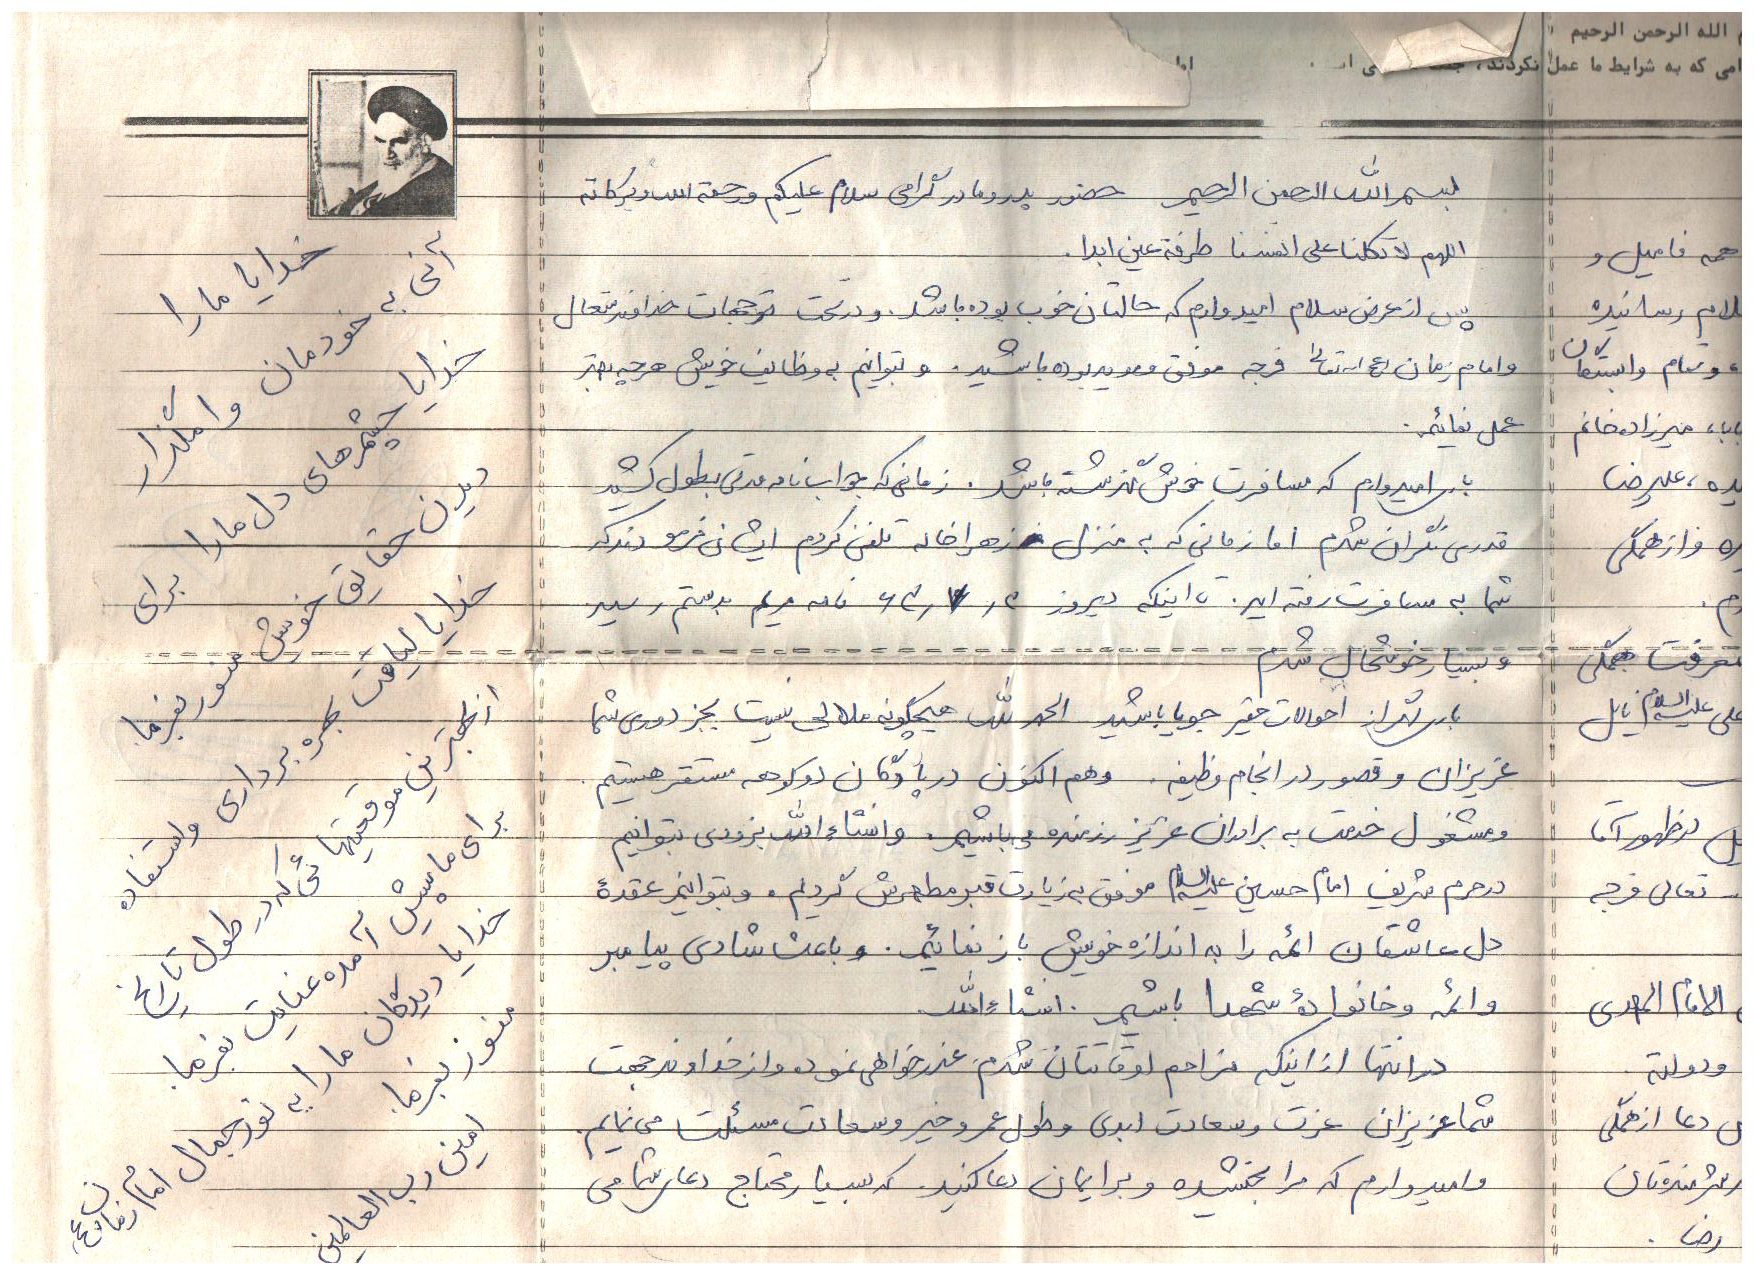 الله الرحمن الرحیم
امی که به شرایط ما عمل نکردند،
بسم الله الرحمن الرحیم حضور پدر و مادر گرامی سلام علیکم و رحمة الله و برکاته
اللهم لا تکلنا علی انفسنا طرفة عین ابدا.
پس از عرض سلام امیدوارم که حالتان خوب بوده باشد. و در تحت توجهات خداوند متعال
و امام زمان عج اله تعالی فرجه موفق و موید بوده باشید. و بتوانیم به وظایف خویش هر چه بهتر
عمل نمائیم.
باری امیدوارم که مسافرت خوش گذشته باشد. زمانی که جواب نامه مدتی بطول کشید
قدری نگران شدم اما زمانی که به منزل زهرا خانه تلفن کردم ایشان فرمودند که
شما به مسافرت رفته اید. تا اینکه دیروز نامه مریم بدستم رسید
و بسیار خوشحال شدم
باری اگر از احوالات حقیر جویا باشید الحمد لله هیچگونه ملالی نیست بجز دوری شما
عزیزان و قصور در انجام وظیفه. و هم اکنون در پادگان دوکوهه مستقر هستیم.
و مشغول خدمت به برادران عزیز رزمنده می باشیم. و انشاءالله بزودی بتوانیم
در حرم شریف امام حسین علیه السلام موفق به زیارت قبر مطهرش گردیم. و بتوانیم عقدهٔ
دل عاشقان ائمه را به اندازه خویش باز نمائیم. و باعث شادی پیامبر
و ائمه و خانوادهٔ شهدا باشیم. انشاءالله.
در انتها از اینکه مزاحم اوقاتتان شدم عذرخواهی نموده و از خداوند جهت
شما عزیزان عزت و سعادت ابدی و طول عمر و خیر و سعادت مسئلت می نمایم.
و امیدوارم که مرا بخشیده و برایمان دعا کنید. که بسیار محتاج دعای شما می
خدایا ما را
آنی به خودمان وامگذار
خدایا چشمهای دل ما را برای
دیدن حقایق خودش منور بفرما
خدایا لیاقت بهره برداری و استفاده
از بهترین موقعیتهائی که در طول تاریخ
برای ما پیش آمده عنایت بفرما.
خدایا دیدگان ما را به نور جمال امام زمان عج
منور بفرما.
امین رب العالمین
همه فامیل و
سلام رسانیده
، و تمام وابستگان
بابا، میرزاده خانم
علیرضا
و از همگی
معرفت همگی
علی علیه السلام نایل
در ظهور آقا
تعالی فرجه
الامام المهدی
و دولته.
دعا از همگی
شرمنده تان
رضا.